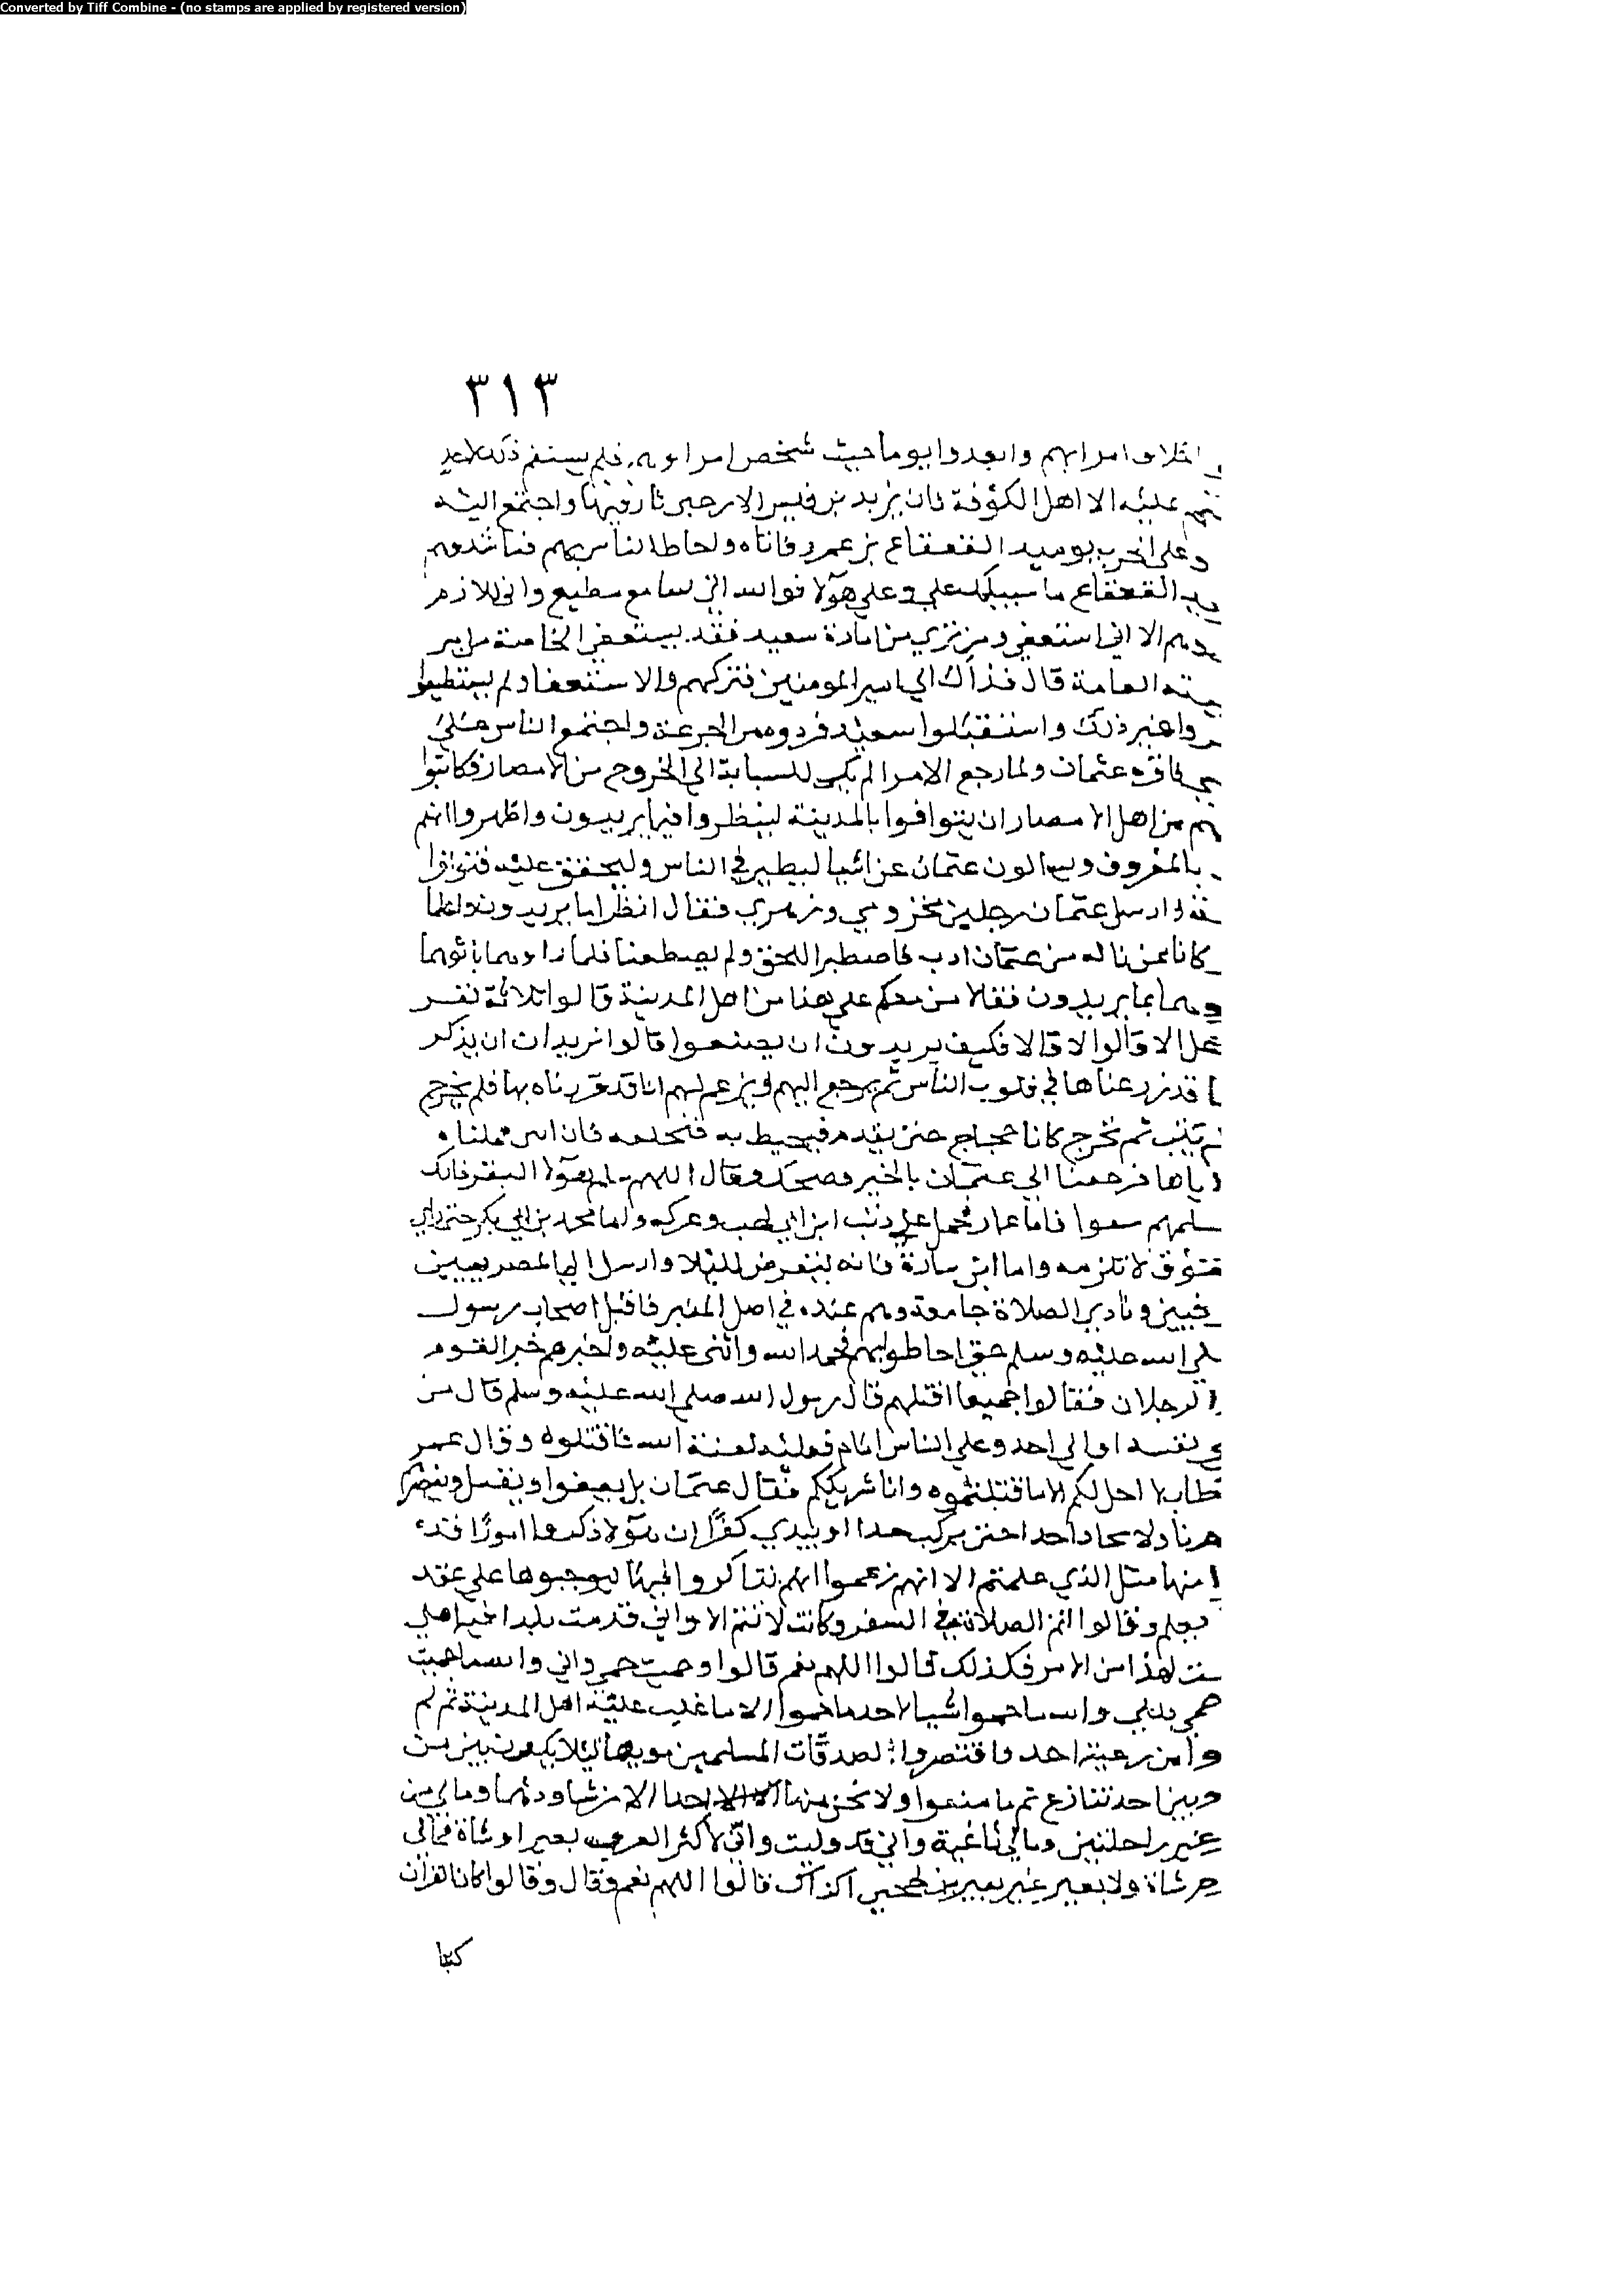 Converted by Tiff Combine - (no stamps are applied by registered version)
٣١٣
امرايهم واتعدوا يوما حيث شخص امراوهم فلم يستقم ذلك لاحد
منهم عليه الا اهل الكوفة فان يزيد بن قيس الارحبي ثار فيها واجتمع اليه
وعلى الحرب يوميد القعقاع بن عمرو فاتاه واحاط الناس بهم فناشدوهم
القعقاع ما سبيلك علي وعلى هولا فوالله اني سامع مطيع واني للازم
الا اني استعفي ومن تري من امارة سعيد فقد يستعفي الخاصة من امر
العامة قال فذاك الي امير المومنين فتركهم والاستعفا ولم يستطيعوا
غير ذلك واستقبلوا سعيد فردوه من الجرعة واجتمع الناس علي
فاقره عثمان ولما رجع الامرا لم يكن للسبايه الي الخروج من الامصار فكاتبوا
من اهل الامصار ان يتوافوا بالمدينة لينظروا فيما يريدون واظهروا انهم
بالمعروف ويسالون عثمان عن اشيا لتطير في الناس وليحقق عليه فتوافوا
ارسل عثمان رجلين مخزومي وزهري فقال انظرا ما يريدون
كانا ممن ناله من عثمان ادب فاصطبرا للحق ولم يضطغنا فلما راوهما باثوهما
بما يريدون فقالا من معكم علي هذا من اهل المدينة قالوا ثلاثة نفر
الا قالوا لا قالا فكيف يريدون ان يصنعوا قالوا نريد ان ان يذكر
قد زرعناها في قلوب الناس ثم يرجع اليهم ويزعم لهم انا قد قررناه بها فلم يخرج
يتب ثم نخرج كانا حجاج حتى يقدم فيحيط به فنخلعه فان ابي قتلناه
اياها فرجعنا الي عثمان بالخبر فضحك وقال اللهم سلم هولا النفر فانك
سلمهم شقوا فاما عمار فحمل علي ذنب ابن ابي لهب وعركه واما محمد بن ابي بكر حتى راي
الحقوق لا تلزمه واما ابن سارة فانه يتعرض للبلا وارسل الي المصريين
ونادي الصلاة جامعة وهم عنده في اصل المنبر فاقبل اصحاب رسول
صلي الله عليه وسلم حتى احاطوا بهم فحمد الله واثنى عليه واخبرهم خبر القوم
الرجلان فقالوا جميعا اقتلهم قال رسول الله صلى الله عليه وسلم قال من
نفسه او الي احد وعلى الناس امام فعليه لعنة الله فاقتلوه وقال عمر
لا احل لكم الا ما قتلتموه وانا شريككم فقال عثمان بل نعفوا ونقبل ونبصرهم
ولا نحاد احدا حتى يركب حدا او يبدي كفرا ان هولا ذكروا امورا قد
منها مثل الذي علمتم الا انهم زعموا انهم يتذاكروا ليوجبوها علي عند
يعلم وقالوا اتم الصلاة في السفر وكانت لا تتم الا واني قدمت بلدا فيه اهلي
لهذا من الامر فكذلك قالوا اللهم نعم قالوا وحميت حمى واني والله ما حميت
حمي قبلي والله ما حموا شيا لاحد ما حموا الا ما غلب عليه اهل المدينة ثم لم
من رعيته احد واقتصروا لصدقات المسلمين يحمونها ليلا يكون بين من
وبين احد تنازع ثم ما منعوا ولا نحوا منها احدا الا من ساق درهما ومالي من
غير راحلتين ومالي ثاغية واني قد وليت واني لاكثر العرب بعيرا وشاة فمالي
شاة ولا بعير غير بعيرين لحجي اكذاك قالوا اللهم نعم وقال وقالوا كان القران
كتبا